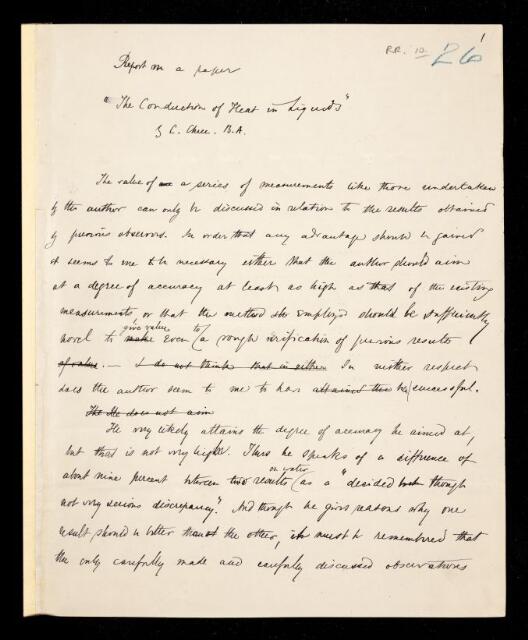 RR. 10 26
1
Report on a paper
"The Conduction of Heat in Liquids"
by C. Chree. B.A.
The value of a series of measurements like those undertaken
by the author can only be discussed in relation to the results obtained
by previous observers. In order that any advantage should be gained
it seems to me to be necessary either that the author should aim
at a degree of accuracy at least as high as that of the existing
measurements, or that the method he employed should be sufficiently
novel to make give value even to a rough verification of previous results
of value. — I do not think that in either In neither respect
does the author seem to me to have attained this been successful.
The He does not aim
He very likely attains the degree of accuracy he aimed at,
but that is not very high. Thus he speaks of a difference of
about nine percent between two results on water as a "decided but though
not very serious discrepancy". And though he gives reasons why one
result should be better than the other, it must be remembered that
the only carefully made and carefully discussed observations